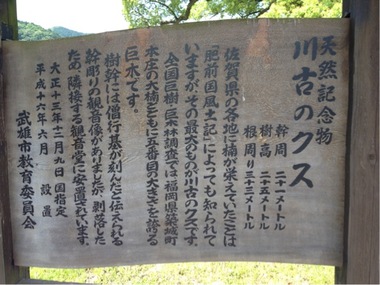 天然記念物
川古のクス
幹周 二十一メートル
樹高 二十五メートル
根周り 三十三メートル
佐賀県の各地に楠が栄えていたことは
「肥前国風土記」によっても知られて
いますが、その最大ものが川古のクスです。
全国巨樹・巨木林調査では福岡県築城町
本庄の大楠とともに五番目の大きさを誇る
巨木です。
樹幹には僧行基が刻んだと伝えられる
幹彫りの観音像がありましたが、剥落した
ため隣接する観音堂に安置されています。
大正十三年十二月九日 国指定
平成十六年六月 設置
武雄市教育委員会